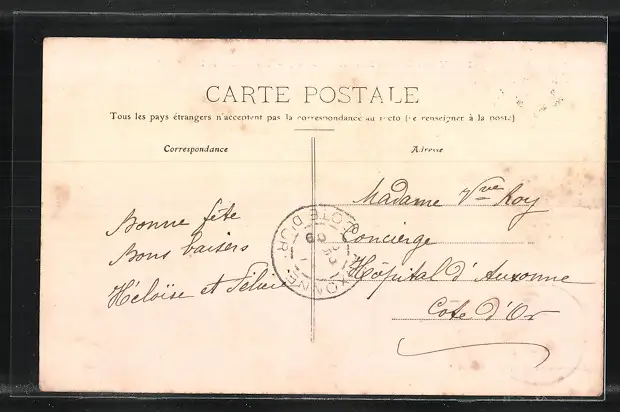 CARTE POSTALE
Tous les pays étrangers n'acceptent pas la correspondance au recto (se renseigner à la poste)
Correspondance
Adresse
Bonne fête
Bons baisers
Héloïse et Félici
Madame Vve Roy
Concierge
Hôpital d'Auxonne
Côte d'Or
AUXONNE
COTE D'OR
09